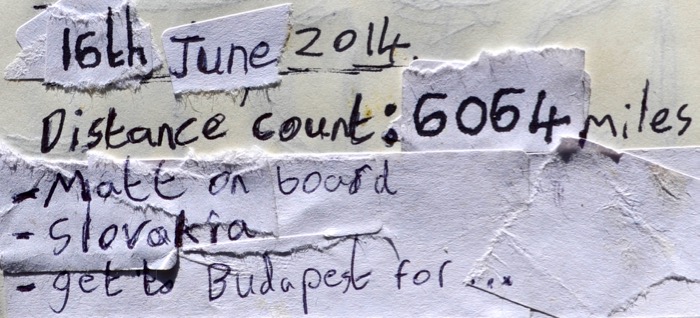 16th June 2014.
Distance count: 6064 miles
- Matt on board
- Slovakia
- get to Budapest for ...